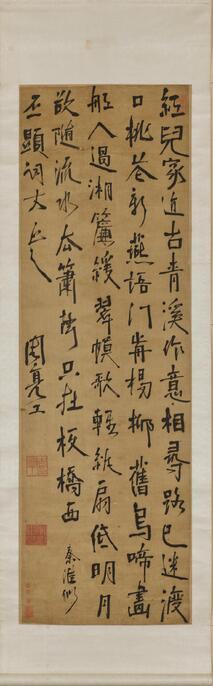 紅兒家近古青溪作意相尋路已迷渡
口桃花新燕語門前楊柳舊烏啼畫
船人過湘簾緩翠幙歌輕紈扇低明月
欲隨流水去簫聲只在板橋西 秦淮似
丕顯詞丈正之
周亮工